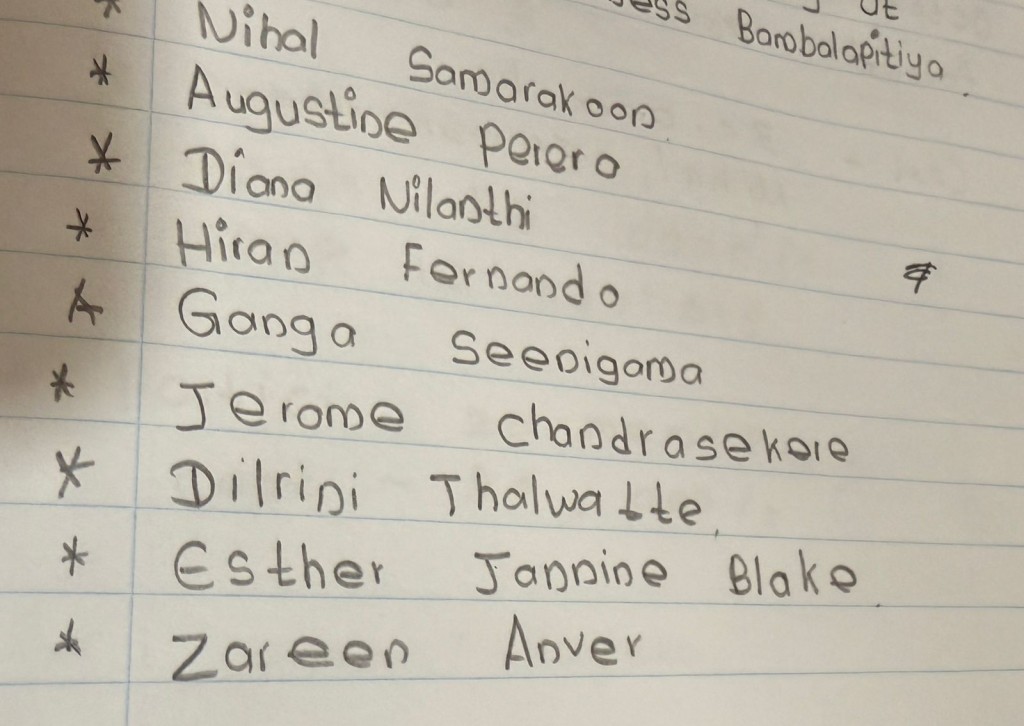 ess Bambalapitiya.
* Nihal Samarakoon
* Augustine Perera
* Diana Nilanthi
* Hiran Fernando
* Ganga Seenigama
* Jerome Chandrasekare
* Dilrini Thalwatte
* Esther Jannine Blake
* Zareen Anver